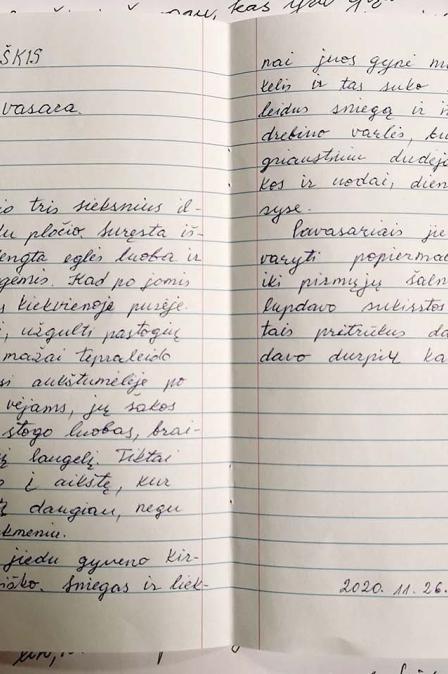 ŠKIS
vasara.
io tris sieksnius il-
du pločio. Suręsta iš-
engta eglės luoba ir
gėmis. Kad po jomis
s kiekvienoje purėje.
i, užgulti pastogių
mažai tepraleido
si aukštumėlėje po
vėjams, jų šakos
stogo luobas, brai-
ą langelį. Tiktai
o į aikštę, kur
ų daugiau, negu
kmeniu.
jiedu gyveno kir-
iško. Sniegas ir liek-
nai juos gynė
kelis ir tas suko
leidus sniegą ir
drebino varlės,
griaustiniu dundėjo
kos ir uodai, dien
syse.
Pavasariais jie
varyti popiermal
iki pirmųjų šaln
lupdavo sukirstos
tais pritrūkus da
davo durpių ka
2020. 11. 26.